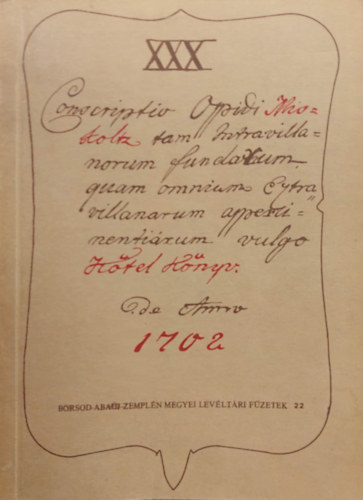 XXX
Conscriptio Oppidi Mis=
koltz tam Intravilla=
norum fundorum
quam omnium Extra
villanarum apperti=
nentiárum vulgo
Kötel Könyv.
de Anno
1702
BORSOD-ABAÚJ-ZEMPLÉN MEGYEI LEVÉLTÁRI FÜZETEK 22